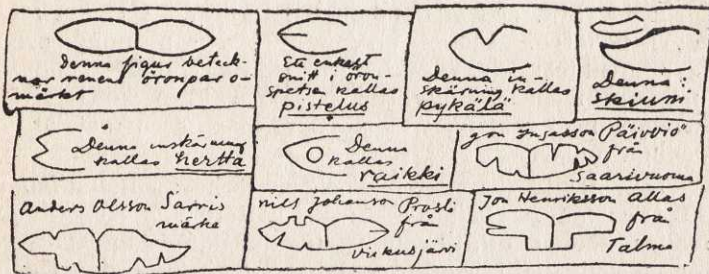 Denna figur beteck-
nar renens öronpar o-
märkt
Ett enkelt
snitt i öron-
spetsen kallas
pistelus
Denna in-
skärning kallas
pykälä
Denna:
skiumi
Denna inskärning
kallas hertta
Denna
kallas
raikki
Jon Ingasson Päiviö
från
Saarivuoma
Anders Olsson Sarris
märke
Nils Johanson Prosti
från
Vickusjärvi
Jon Henriksson Allas
från
Talma